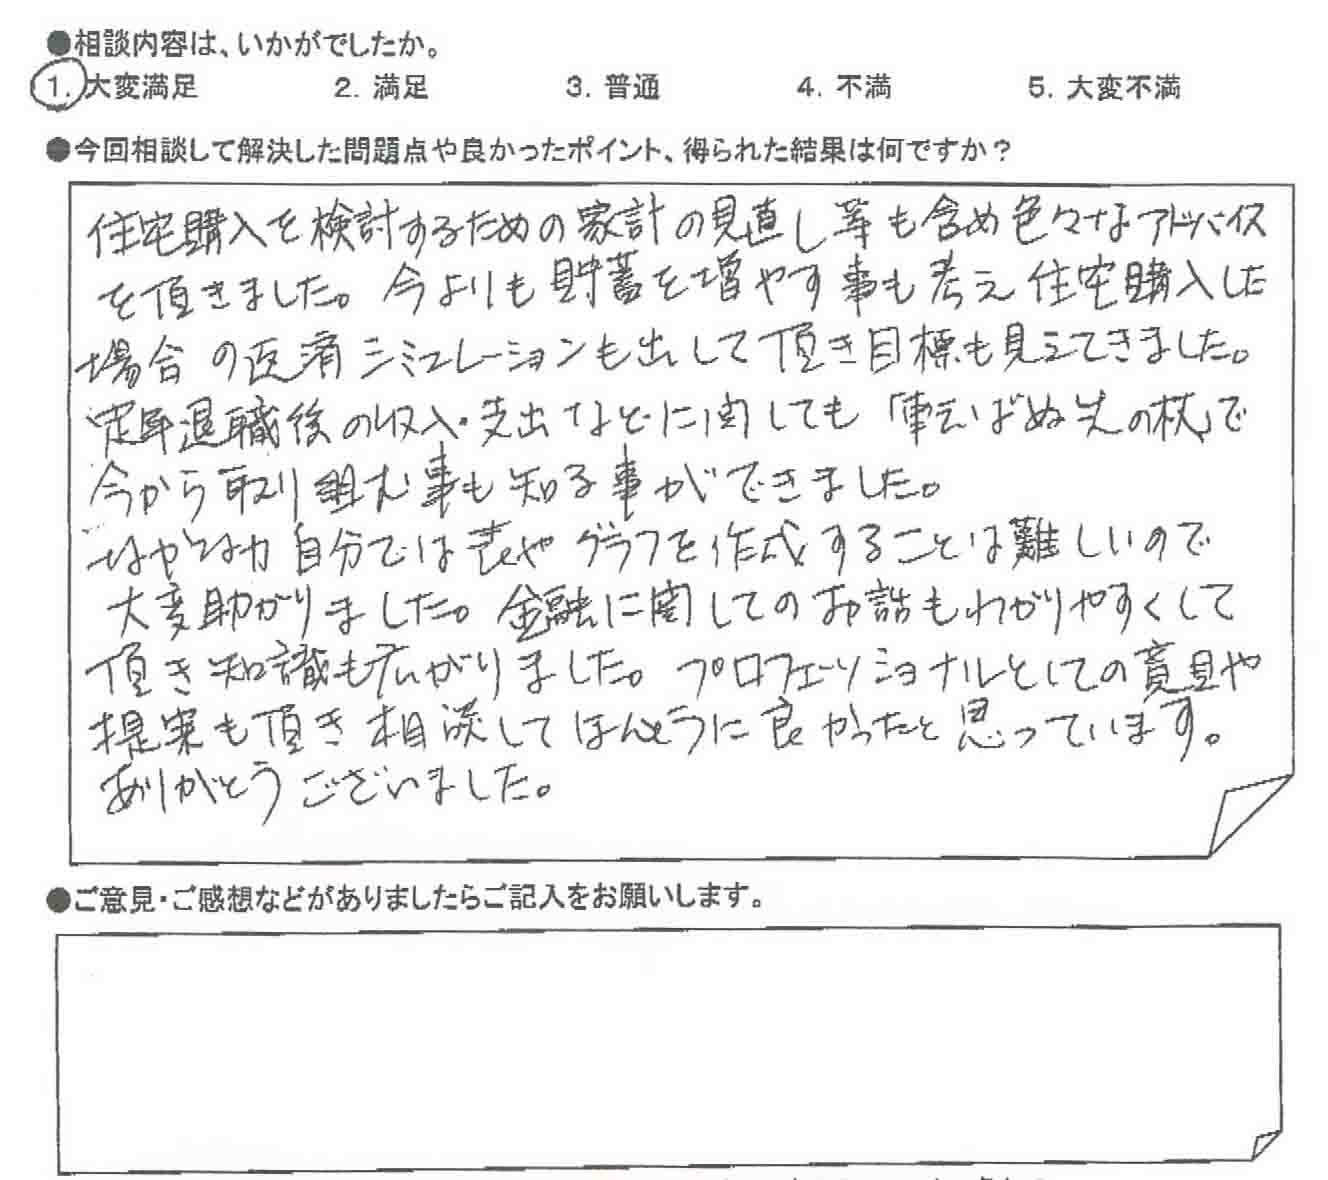 ●相談内容は、いかがでしたか。
1. 大変満足 2. 満足 3. 普通 4. 不満 5. 大変不満
●今回相談して解決した問題点や良かったポイント、得られた結果は何ですか？
住宅購入を検討するための家計の見直し等も含め色々なアドバイス
を頂きました。今よりも貯蓄を増やす事も考え住宅購入した
場合の返済シミュレーションも出して頂き目標も見えてきました。
定年退職後の収入・支出などに関しても「転ばぬ先の杖」で
今から取り組む事も知る事ができました。
なかなか自分では表やグラフを作成することは難しいので
大変助かりました。金融に関してのお話もわかりやすくして
頂き知識も広がりました。プロフェッショナルとしての意見や
提案も頂き相談してほんとうに良かったと思っています。
ありがとうございました。
●ご意見・ご感想などがありましたらご記入をお願いします。